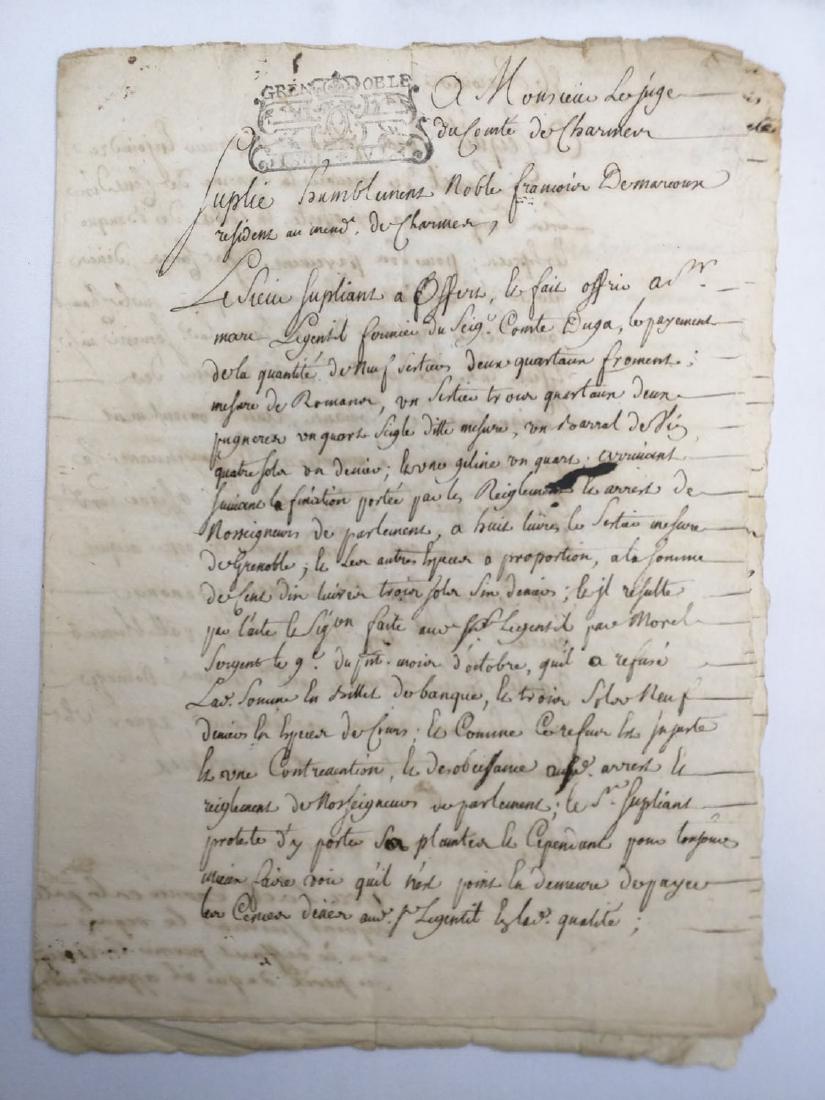 GRENOBLE
A Monsieur Le juge
du Comté de Charmes
Suplie humblement Noble francoies Demarcoux
resident au mend.t de Charmes,
Le sieur supliant a offert, et fait offrir a Sr.
marc Legentil fermier du Seigr. Comte Duga, le payement
de la quantité de Neuf sertiers deux quartaux froment;
mesure de Romans, un Sertier trois quartaux deux
pugneres un quart seigle ditte mesure, un barral de
quatre sols un denier; et une geline un quart
suivant la fixation portée par les Reiglements et arrest de
Nosseigneurs de parlement, a huit livres le Sertier mesure
de Grenoble; et les autres especes a proportion, a la somme
de Cent dix livres trois sols six deniers; et jl resulte
par l'acte le Sigon faite aud. Sr. Legentil par Morel
Sergent le 9e. du pnt. mois d'octobre, quil a refusé
Lad. Somme en billet de banque, et trois Sols Neuf
deniers en especes de Cours; et Comme Ce refus est jnjuste
et une Contravention, et desobeissance aud. arrest et
reiglement de Nosseigneurs de parlement; le Sr. Supliant
proteste d'y porter Sa plainte et Cependant pour tousjours
mieux faire voir quil n'est point en demeure de payer
les Censes deües aud. Sr Legentil Eslad. qualité;